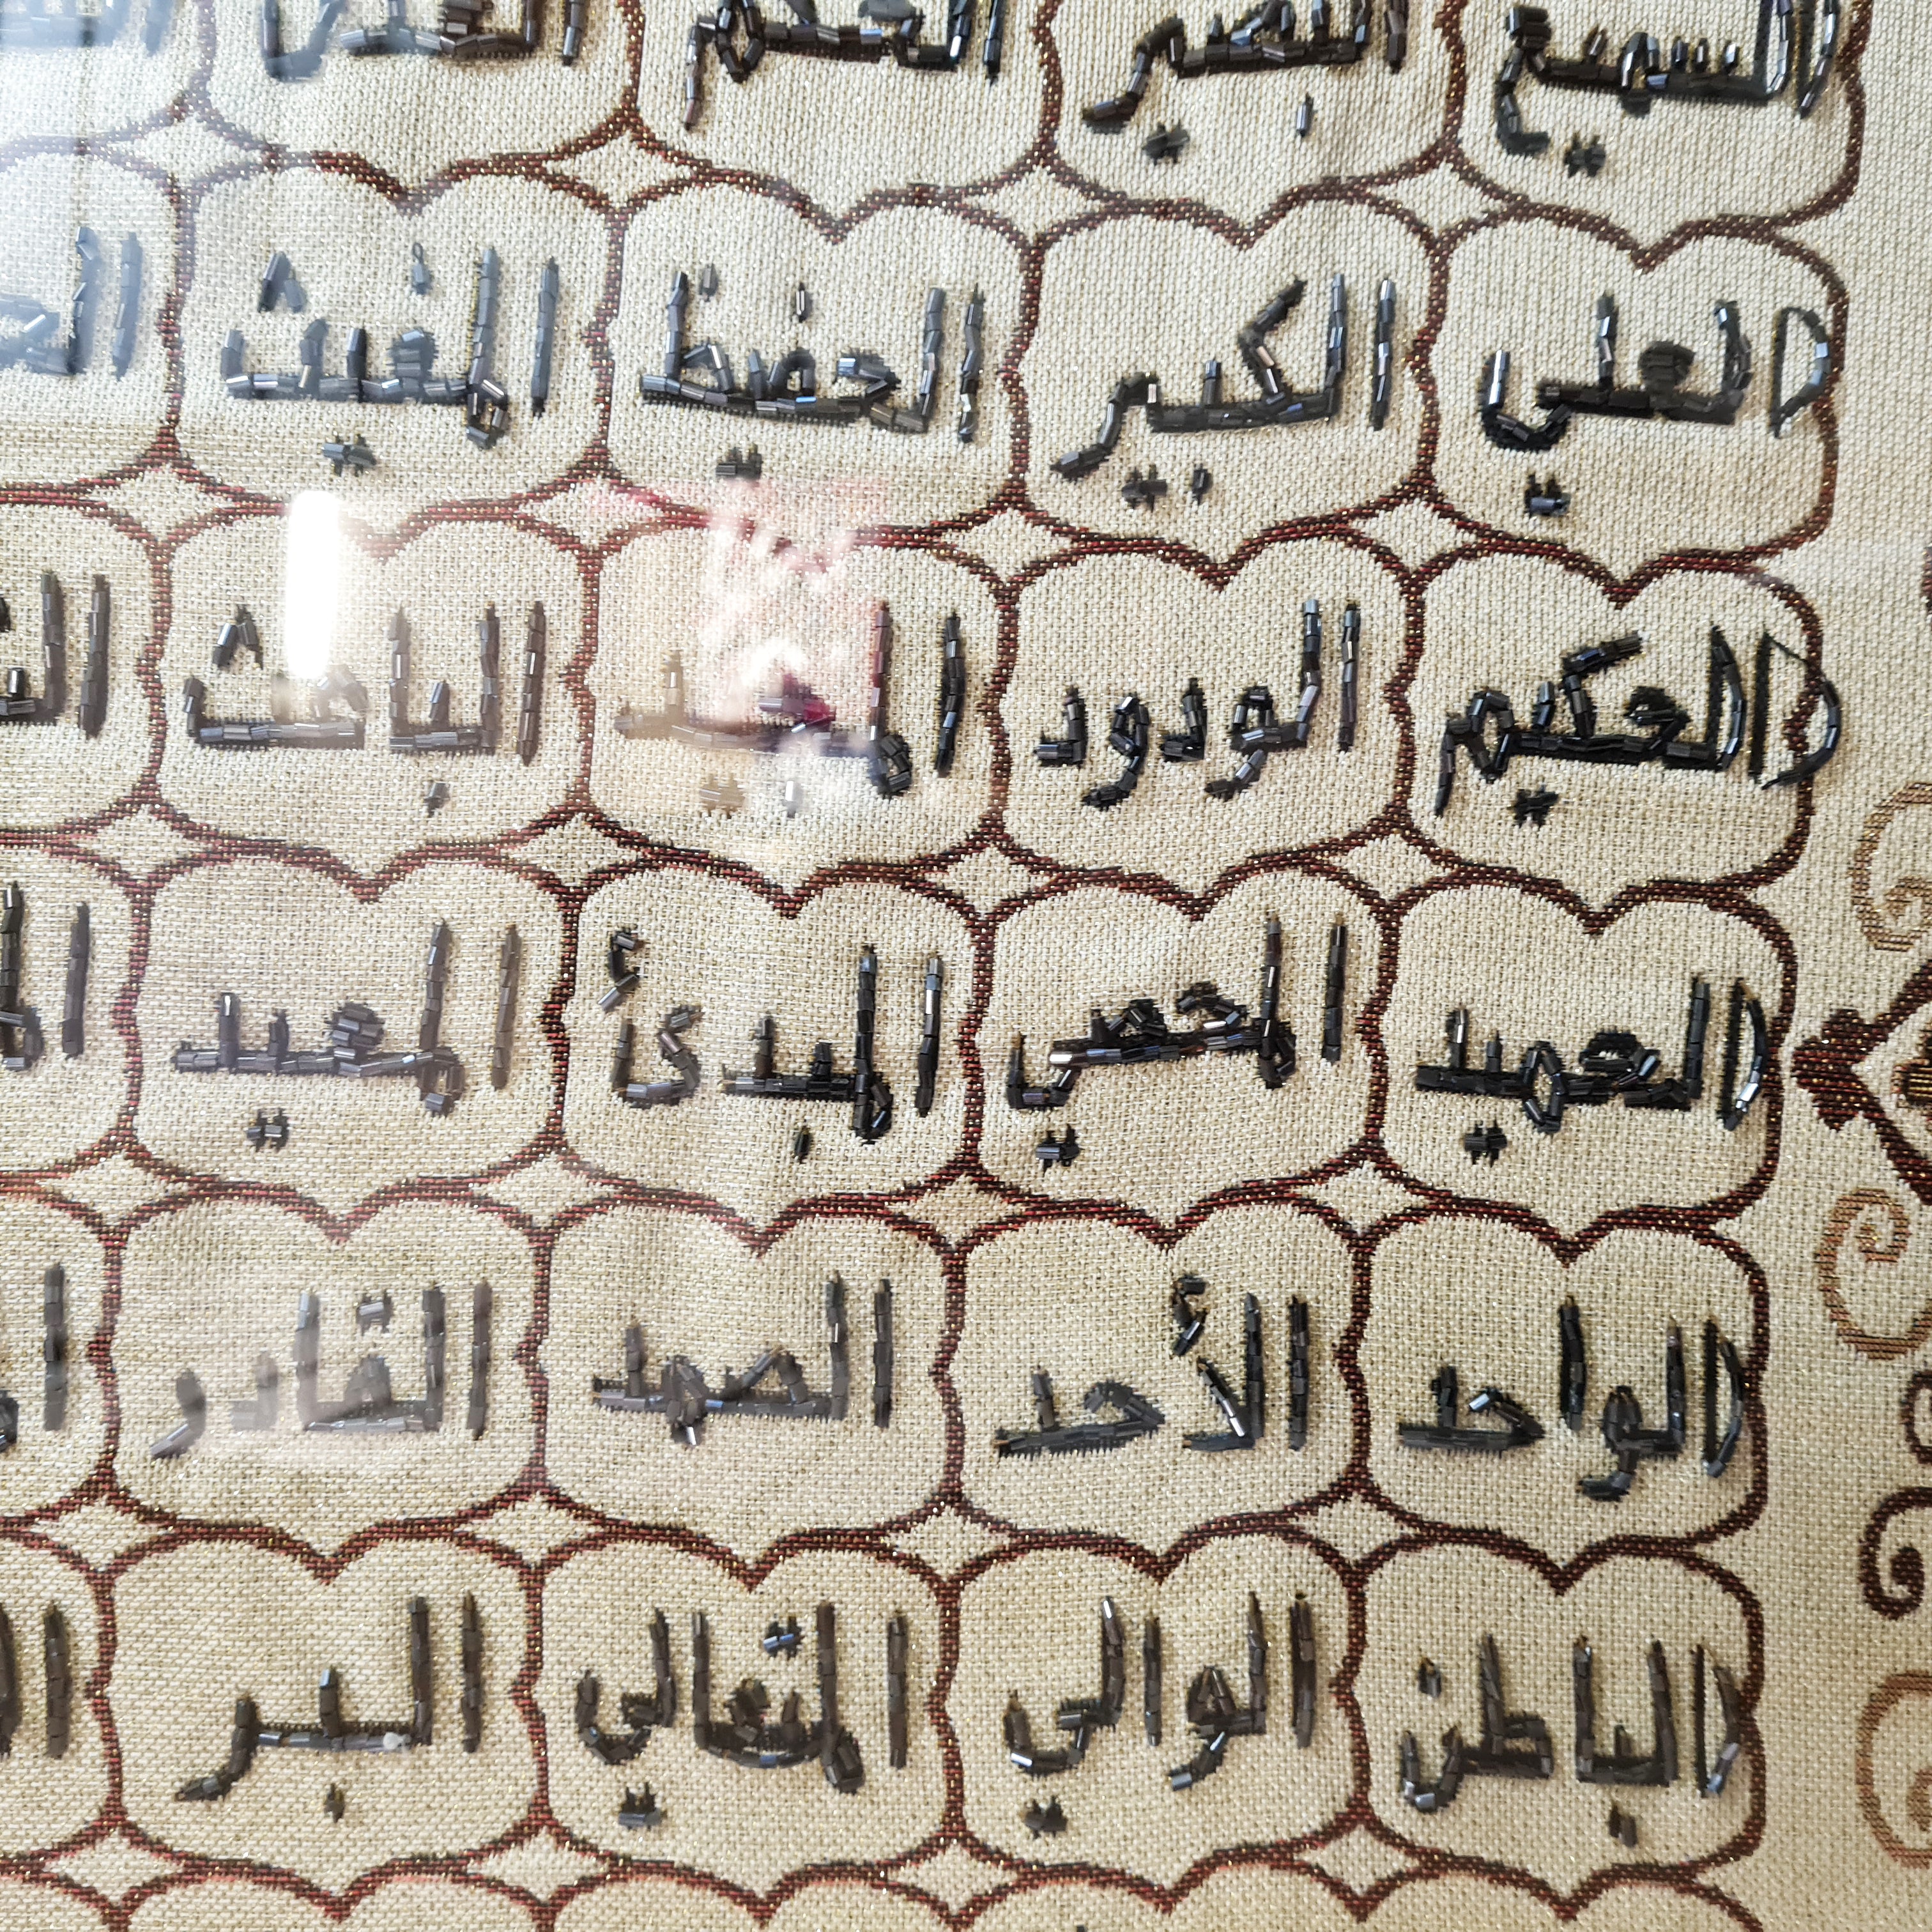 السميع البصير الحكم العدل
العلي الكبير الحفيظ المغيث
الحكيم الودود المجيد الباعث
الحميد المحصي المبدئ المعيد
الواحد الأحد الصمد القادر
الباطن الوالي المتعالي البر